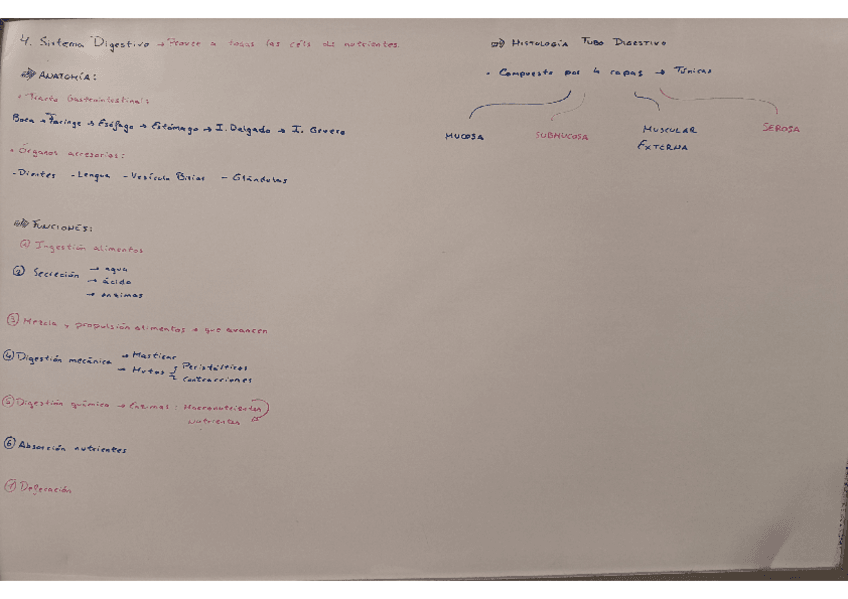 4. Sistema Digestivo → Provee a todas las céls de nutrientes
⇒ ANATOMÍA:
• Tracto Gastrointestinal:
Boca → Faringe → Esófago → Estómago → I. Delgado → I. Grueso
• Órganos accesorios:
- Dientes - Lengua - Vesícula Biliar - Glándulas
⇒ FUNCIONES:
① Ingestión alimentos
② Secreción → agua
→ ácido
→ enzimas
③ Mezcla y propulsión alimentos → que avancen
④ Digestión mecánica → Masticar
→ Mvtos Peristálticos
contracciones
⑤ Digestión química → Enzimas: Macronutrientes
nutrientes
⑥ Absorción nutrientes
⑦ Defecación
⇒ HISTOLOGÍA TUBO DIGESTIVO
• Compuesto por 4 capas → Túnicas
MUCOSA SUBMUCOSA MUSCULAR EXTERNA SEROSA